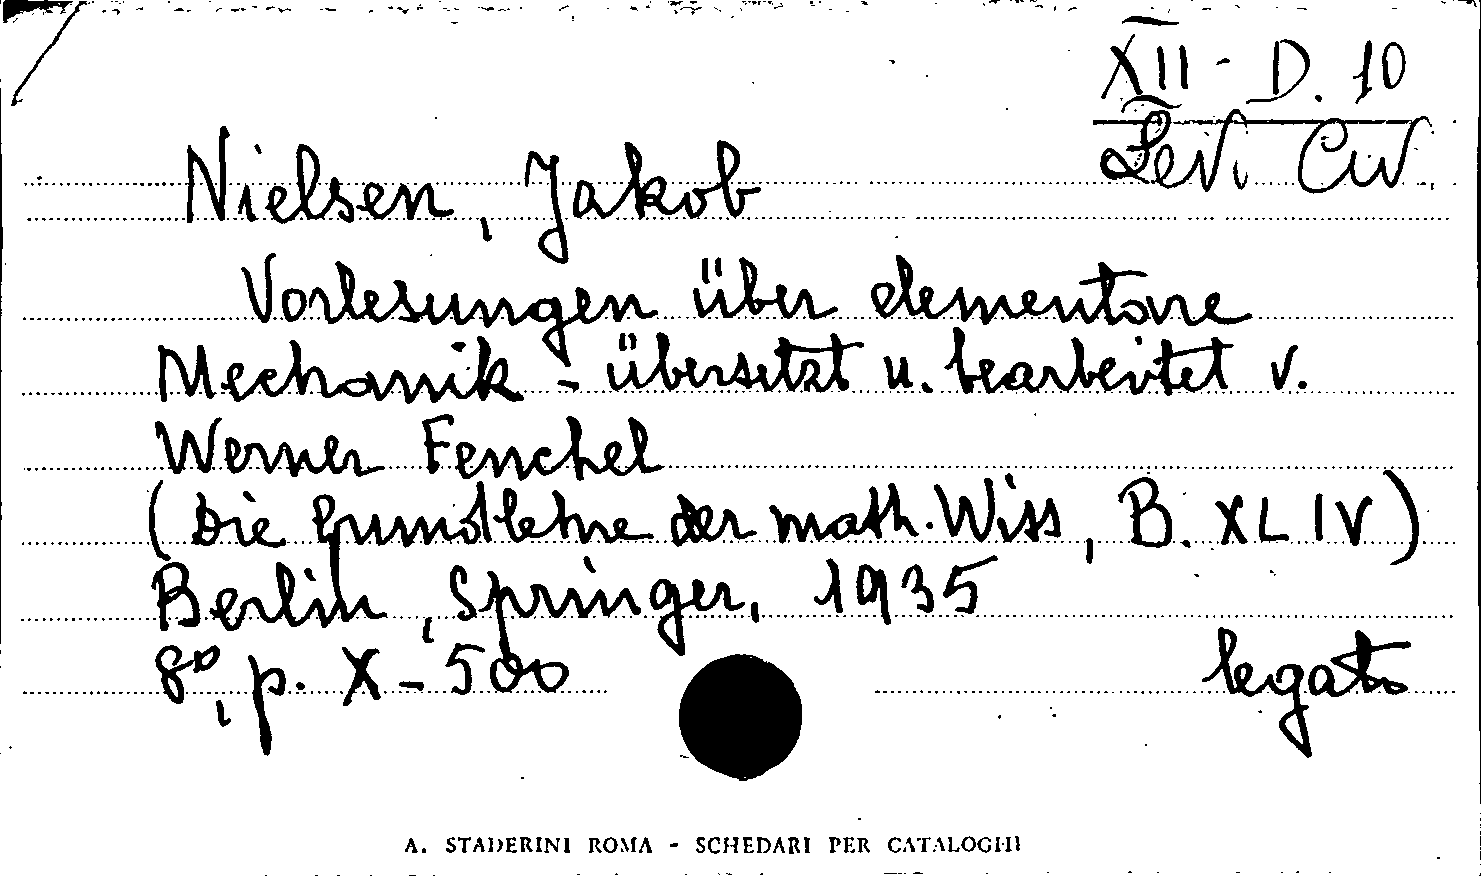 XII - D. 10
Lev. Civ.
Nielsen, Jakob
Vorlesungen über elementare
Mechanik - übersetzt u. bearbeitet v.
Werner Fenchel
(Die Grundlehre der math. Wiss, B. XLIV)
Berlin, Springer, 1935
8°, p. X - 500
legato
A. STADERINI ROMA - SCHEDARI PER CATALOGHI